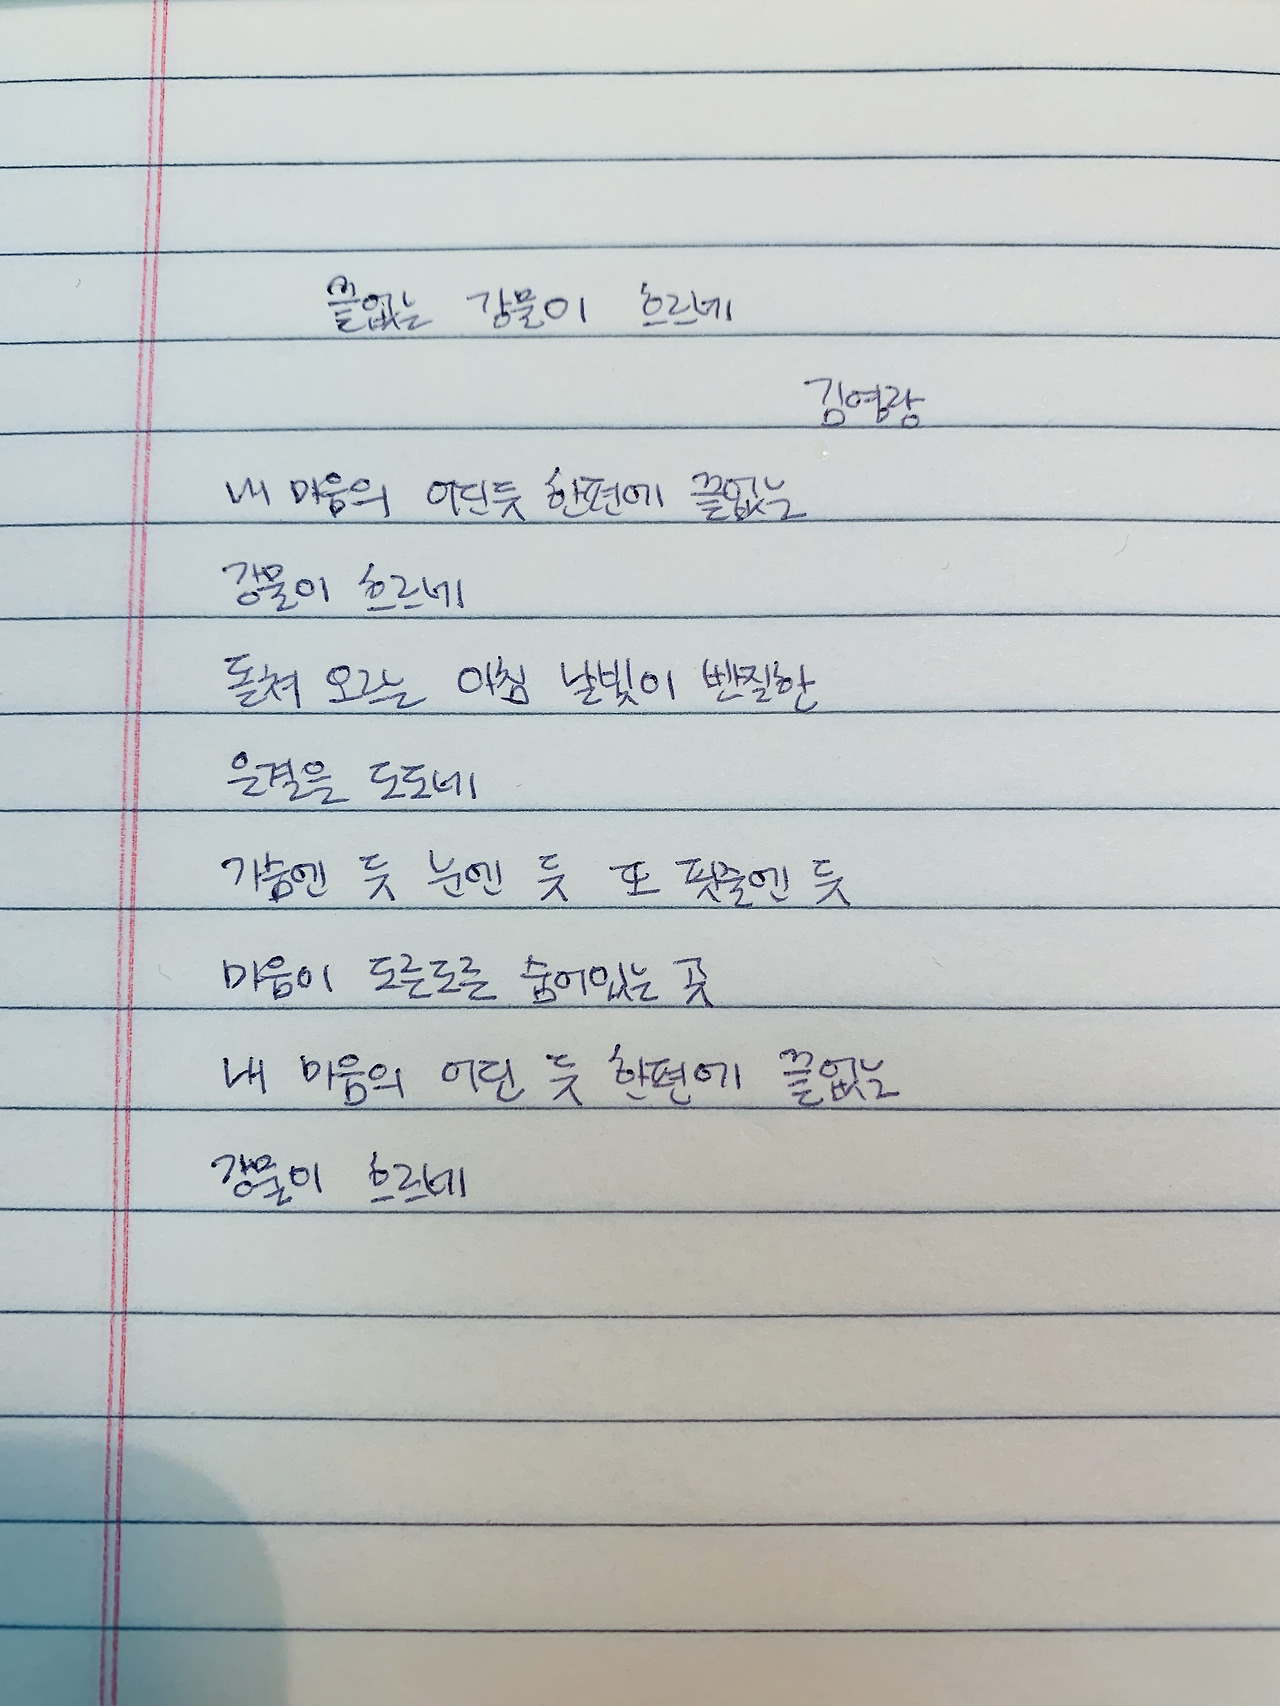 끝없는 강물이 흐르네
김영랑
내 마음의 어딘듯 한편에 끝없는
강물이 흐르네
돌쳐 오르는 아침 날빛이 빤질한
은결을 도도네
가슴엔 듯 눈엔 듯 또 핏줄엔 듯
마음이 도른도른 숨어있는 곳
내 마음의 어딘 듯 한편에 끝없는
강물이 흐르네